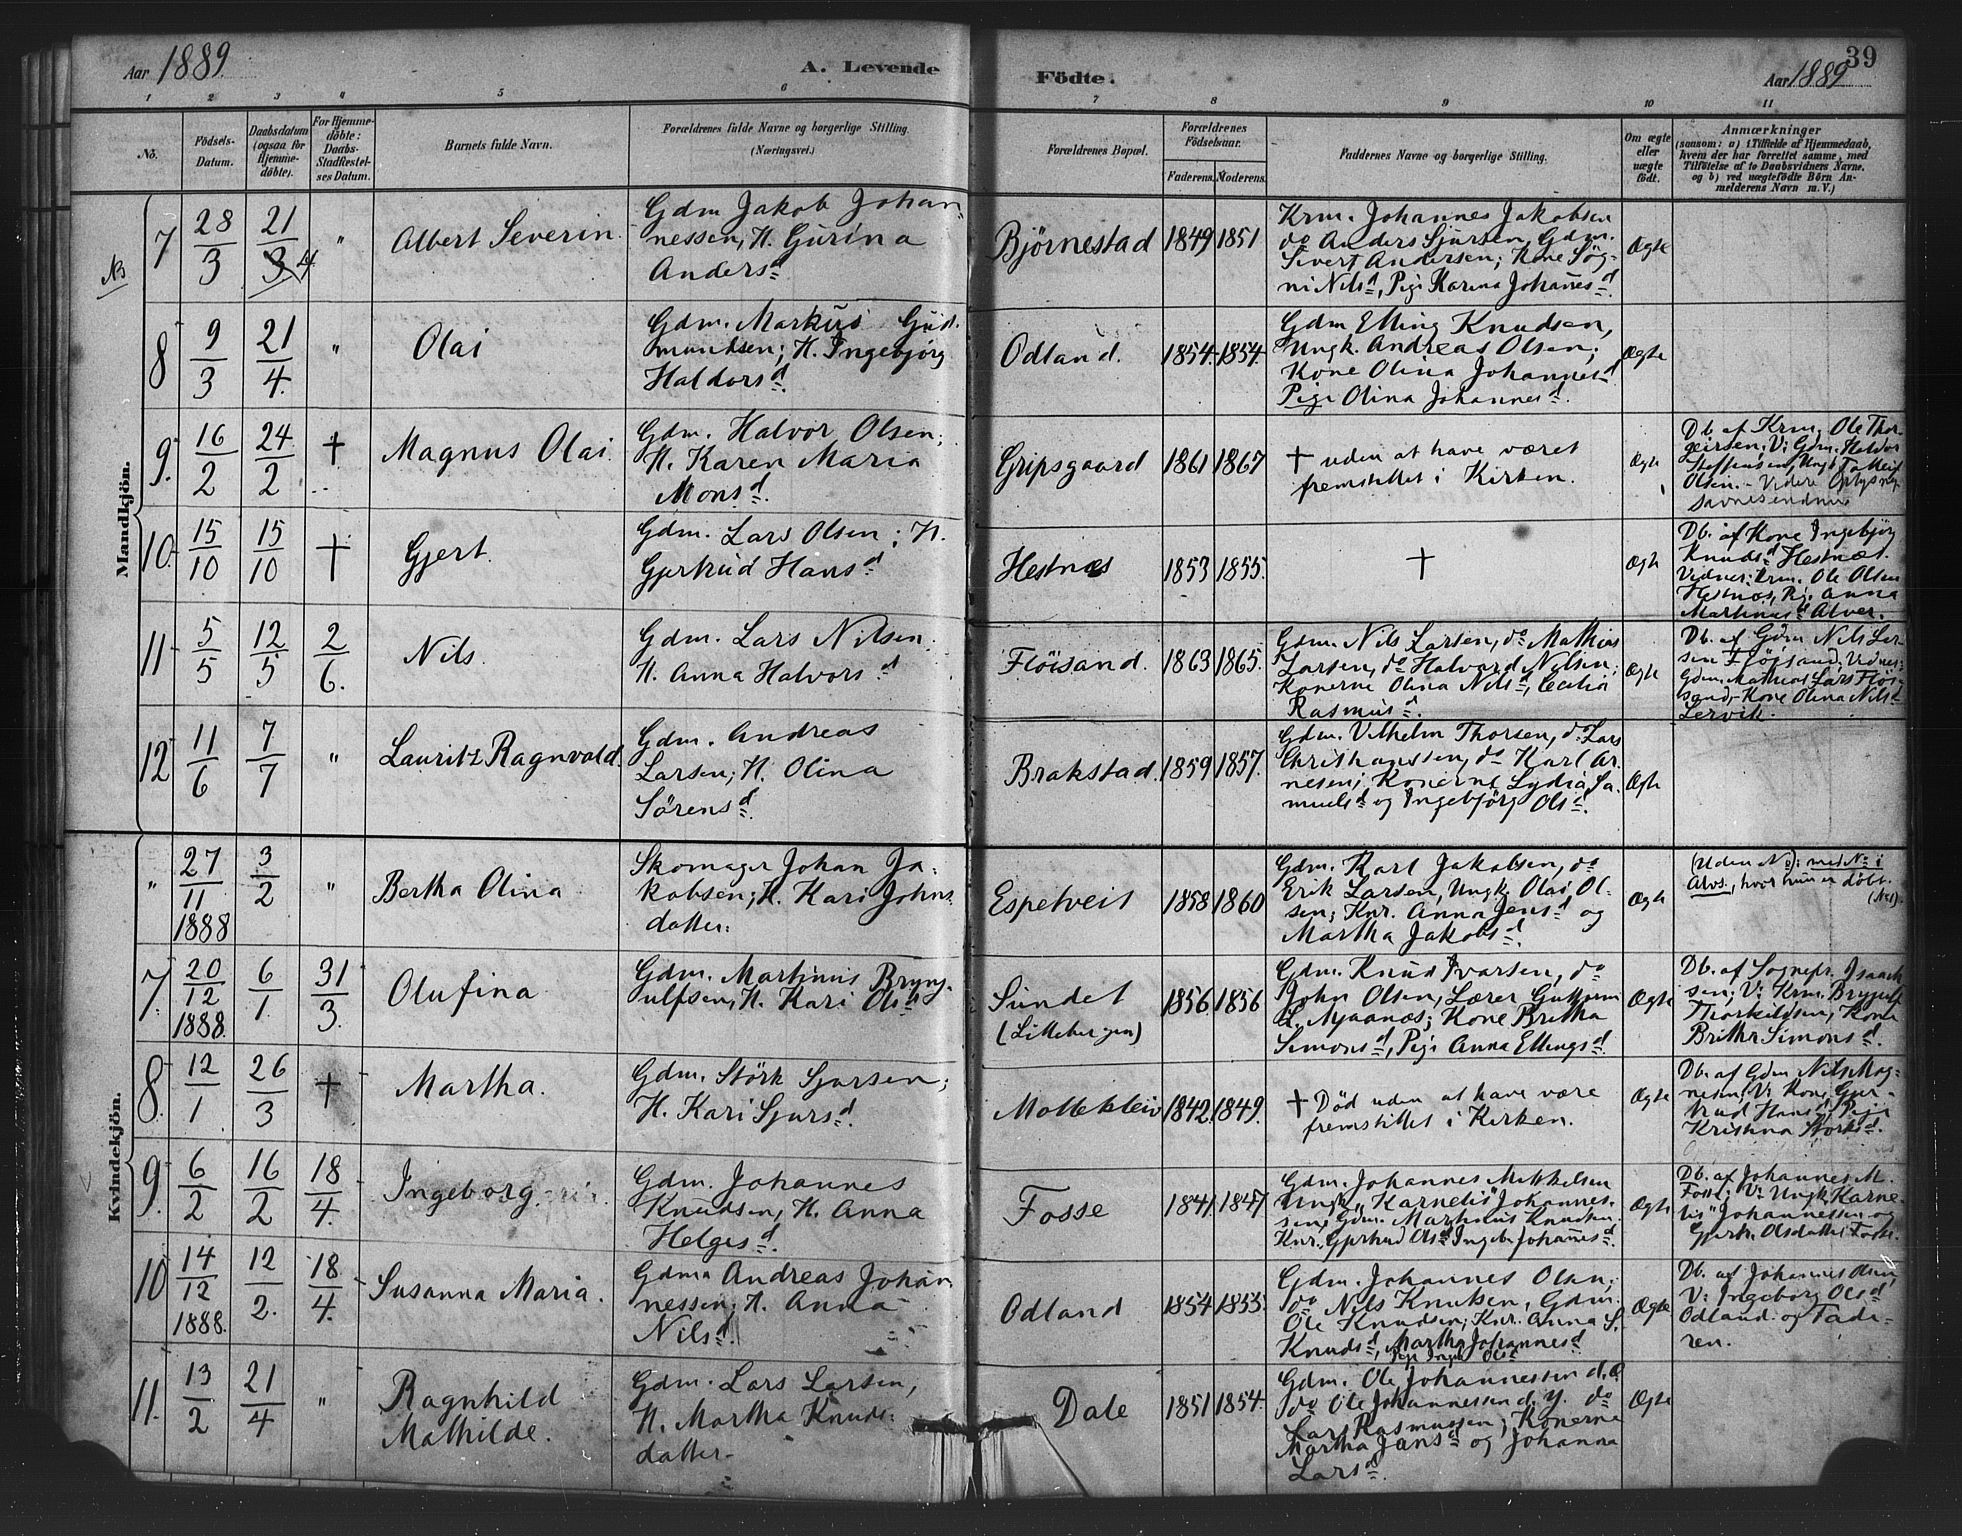 Aar 1889.
A. Levende
Födte.
39
Aar 1889
1 2 3 4 5 6 7 8 9 10 11
No.
Födsels-
Datum.
Daabsdatum
(ogsaa for
Hjemme-
döbte).
For Hjemme-
döbte:
Daabs-
Stadfestel-
ses Datum.
Barnets fulde Navn.
Forældrenes fulde Navne og borgerlige Stilling.
(Næringsvei.)
Forældrenes Bopæl.
Forældrenes
Födselsaar.
Faderens.
Moderens.
Faddernes Navne og borgerlige Stilling.
Om ægte
eller
uægte
födt.
Anmærkninger
(saasom: a) i Tilfælde af Hjemmedaab,
hvem der har forrettet samme, med
Tilföielse af to Daabsvidners Navne,
og b) ved uægtefödte Börn An-
melderens Navn m. V.)
Mandkjön.
7
28
3
21
3 4
"
Albert Severin
Gdm Jakob Johan-
nessen, H. Gurina
Andersd.
Bjørnestad
1849
1851
Krm. Johannes Jakobsen
do Anders Sjursen, Gdm.
Sivert Andersen; Kone Søg-
ni Nilsd, Pige Karina Johanesd.
Ægte
8
9
3
21
4.
"
Olai
Gdm. Markus Gud-
mundsen; H. Ingebjörg
Haldorsd.
Odland.
1854.
1854.
Gdm Elling Knudsen,
Ungk. Andreas Olsen;
Kone Olina Johannesd
Pige Olina Johannesd.
Ægte
9.
16
2
24
2
†
Magnus Olai
Gdm. Halvor Olsen;
H. Karen Maria
Monsd.
Gripsgaard
1861
1867
† uden at have været
fremstillet i Kirken.
Ægte
Db. af Krm. Ole Thor-
geirsen; V: Gdm. Haldor
Steffensen, Ungk
Olsen. - Videre Oplysnig
savnes endnu
10.
15
10
15
10
†
Gjert.
Gdm. Lars Olsen; H.
Gjertrud Hansd
Hestnes
1853
1855.
†
Ægte
Db. af Kone Ingebjörg
Knudsd Hestnes.
Vidner: Krm. Ole Olsen
Hestnes, Pg. Anna
Martinusd Alver.
11
5
5
12
5
2
6.
Nils.
Gdm. Lars Nilsen.
H. Anna Halvorsd
Flöisand.
1863
1865.
Gdm. Nils Larsen, do Mathias
Larsen, do Halvard Nilsen;
Konerne Olina Nilsd, Cecilia
Rasmusd.
Ægte
Db. af Gdm Nils Lar-
sen Flöisand; Vidner:
Gdm. Mathias Lars Flöi-
sand, Kone Olina Nilsd
Lervik.
12
11
6
7
7
"
Lauritz Ragnvald.
Gdm. Andreas
Larsen; H. Olina
Sörensd.
Brakstad.
1859
1857.
Gdm. Vilhelm Thorsen, do Lars
Christianssen, do Karl Ar-
nesen; Konerne Lydia Sa-
muelsd og Ingebjörg Olsd.
Ægte
Kvindekjön.
"
27
11
1888
3
2
"
Bertha Olina
Skomager Johan Ja-
kobsen; H. Kari Johns-
datter:
Espetveit
1858
1860
Gdm. Karl Jakobsen, do
Erik Larsen, Ungk. Olai Ol-
sen; Knr. Anna Jensd og
Martha Jakobsd.
Ægte
(Uden No): med No i
Alvs., hvor hun er döbt.
7.
20
12
1888.
6
1.
31
3.
Olufina
Gdm. Martinus Bryng-
ulfsen, H. Kari Olsd
Sundet
(Littebergen)
1856.
1856
Gdm. Knud Ivarsen, do
John Olsen, Lærer Guttorm
L. Mjaanæs; Kone Britha
Simonsd, Pige Anna Ellingsd.
Ægte
Db. af Sognepr. Isaach-
sen; V: Krm. Bryngulf
Thorkildsen, Kone
Brithe Simonsd.
8.
12
1
26
3
†
Martha.
Gdm. Störk Sjursen;
H. Kari Sjursd.
Molleklev
1842.
1849.
† Død uden at have være
fremstillet i Kirken.
Ægte
Db. af Gdm Nils Mog-
nesen, V: Kone Gjer-
trud Hansd, Pige
Kristina Störksd.
9.
6
2
16
2
18
4.
Ingeborg
Gdm. Johannes
Knudsen, H. Anna
Helgesd.
Fosse
1841.
1847
Gdm. Johannes Mikkelsen
Ungk. "Karnelis" Johannes-
sen, Gdm. Martinus Knudsen.
Knr. Gjertrud Olsd Ingebr Johannesd.
Ægte
Db. af Johannes M.
Fosse; V: Ungk. Karne-
lis Johannessen og
Gjertr. Olsdatter Fosse.
10
14
12
1888.
12
2.
18
4.
Susanna Maria.
Gdm Andreas Johan-
nessen; H. Anna
Nilsd.
Odland
1854
1855.
Gdm. Johannes Olsn,
do Nils Knutsen, Gdm.
Ole Knudsen; Knr. Anna S.
Knudsd, Martha Johannesd
Pige Ingeb Olsd
Ægte
Db. af Johannes Olsen,
V: Ingeborg Olsd
Odland og Fade-
ren.
11.
13
2
21
4
"
Ragnhild
Mathilde.
Gdm. Lars Larsen,
H. Martha Knuds-
datter.
Dale
1851
1854.
Gdm. Ole Johannessen d. e.
do Ole Johannessen d. y. do
Lars Rasmussen; Konerne
Martha Jansd og Johanna
Larsd.
Ægte